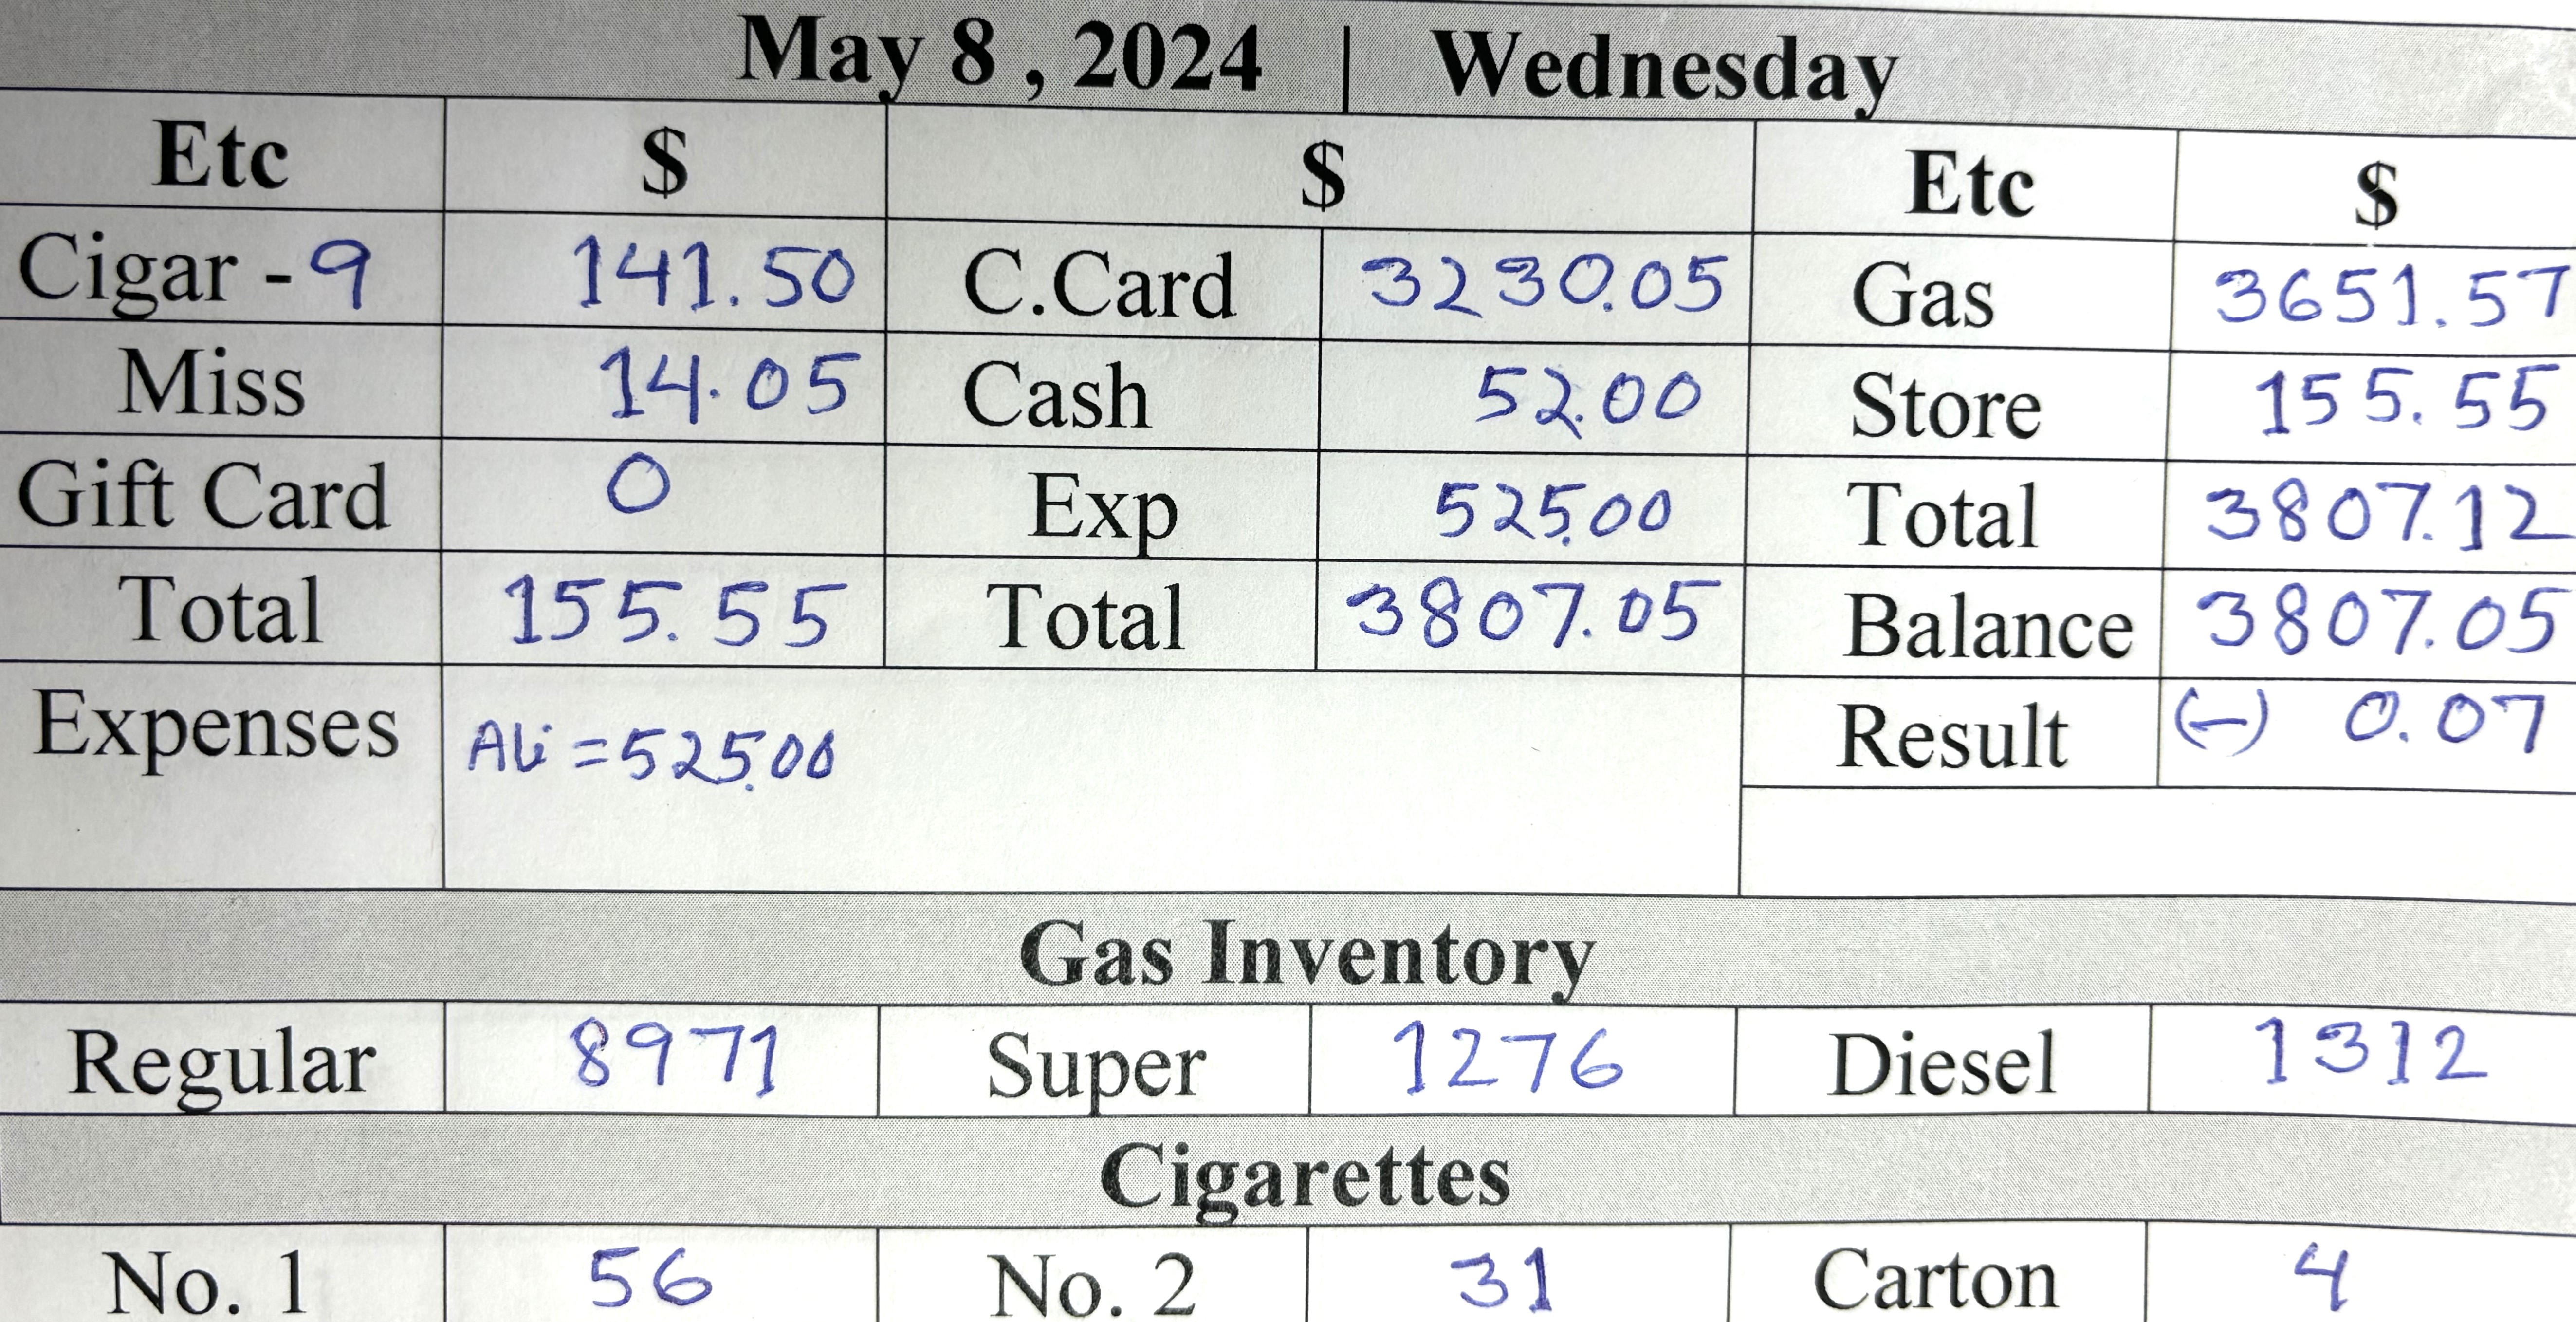 May 8 , 2024 | Wednesday
Etc $ $ Etc $
Cigar - 9 141.50 C.Card 3230.05 Gas 3651.57
Miss 14.05 Cash 52.00 Store 155.55
Gift Card 0 Exp 525.00 Total 3807.12
Total 155.55 Total 3807.05 Balance 3807.05
Expenses Ali = 525.00 Result (-) 0.07
Gas Inventory
Regular 8971 Super 1276 Diesel 1312
Cigarettes
No. 1 56 No. 2 31 Carton 4